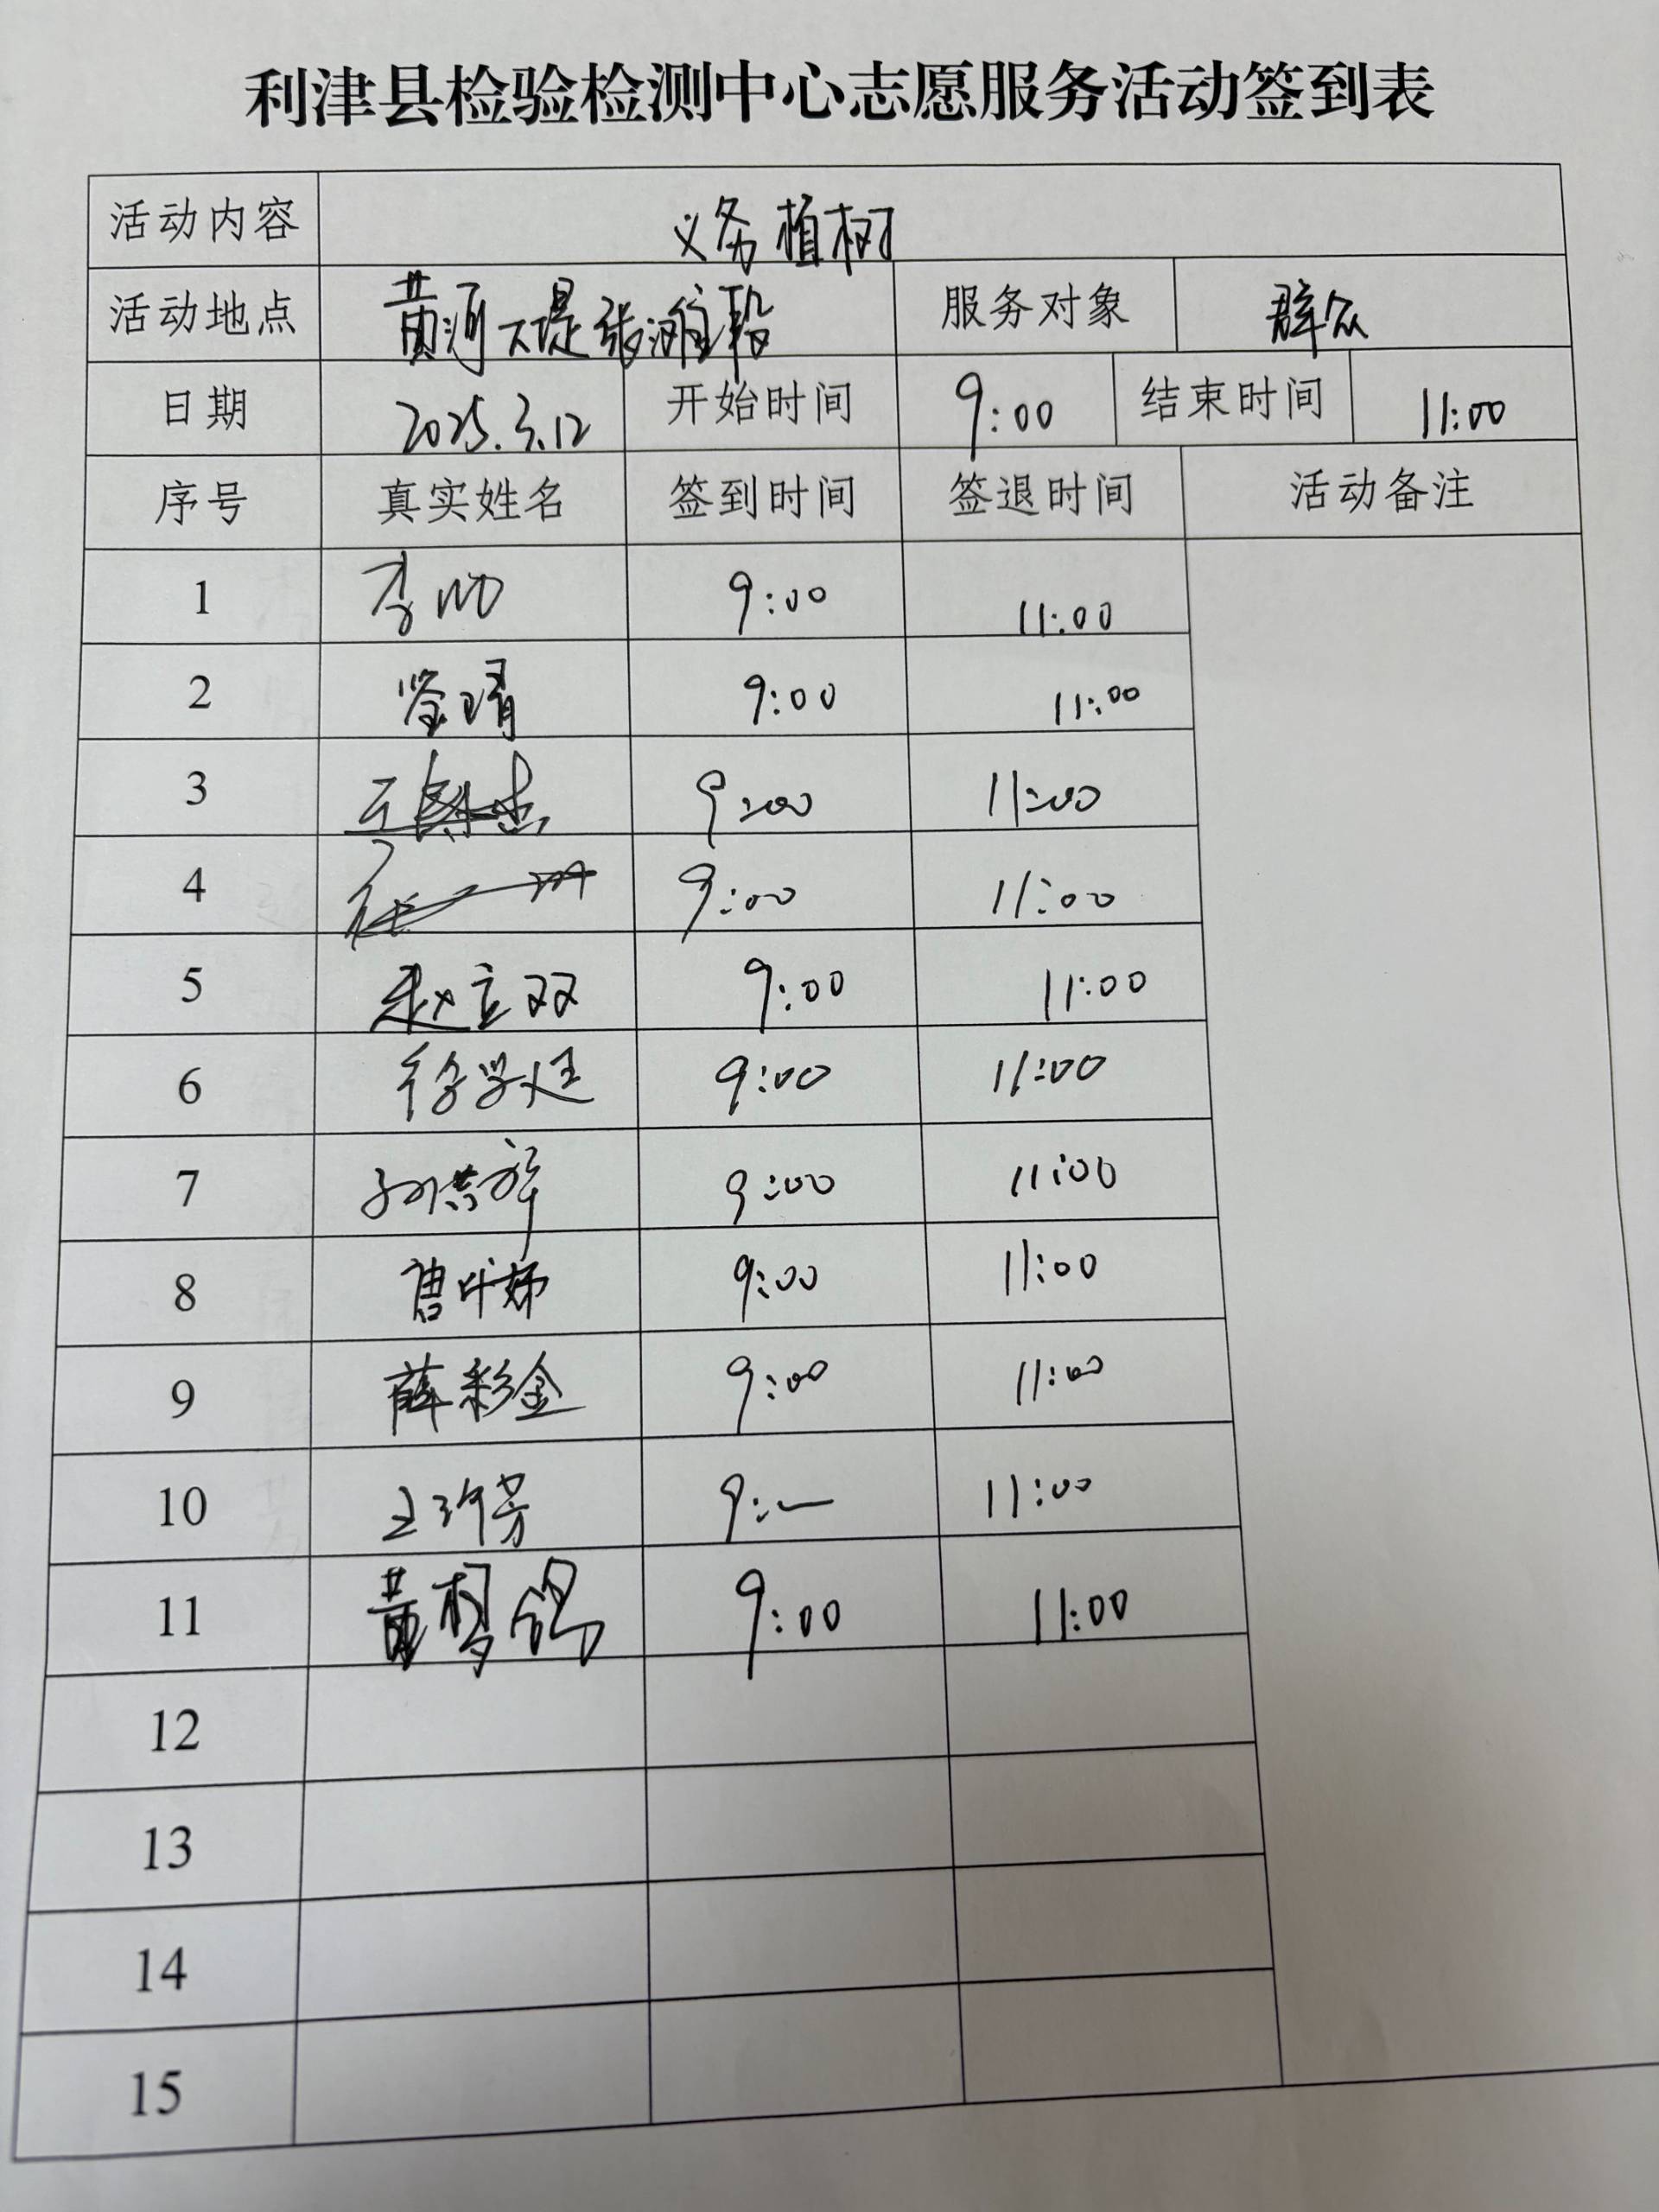 利津县检验检测中心志愿服务活动签到表
活动内容 义务植树
活动地点 黄河大堤张滩段 服务对象 群众
日期 2025.3.12 开始时间 9:00 结束时间 11:00
序号 真实姓名 签到时间 签退时间 活动备注
1 李 9:00 11:00
2 9:00 11:00
3 9:00 11:00
4 9:00 11:00
5 赵立双 9:00 11:00
6 徐学廷 9:00 11:00
7 孙洪祥 9:00 11:00
8 曹 9:00 11:00
9 薛彩金 9:00 11:00
10 王 芳 9: 11:00
11 黄 9:00 11:00
12
13
14
15